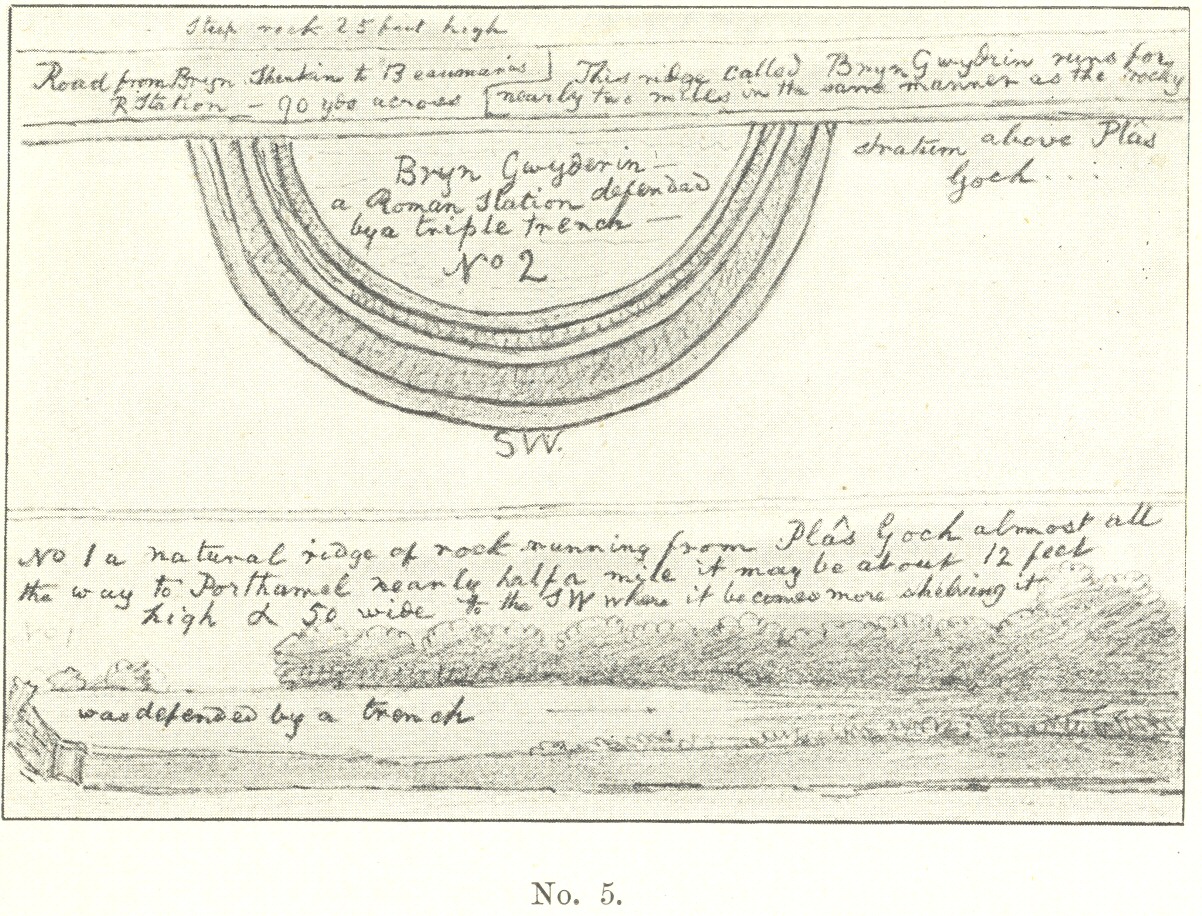 Steep rock 25 feet high
Road from Bryn Shenkin to Beaumaris
R Station – 90 yds across
This ridge called Bryn Gwyderin runs for
nearly two miles in the same manner as the rocky
stratum above Plâs
Goch...
Bryn Gwyderin –
a Roman Station defended
by a triple trench –
No 2
SW.
No 1 a natural ridge of rock running from Plâs Goch almost all
the way to Porthamel nearly half a mile it may be about 12 feet
high & 50 wide to the SW where it becomes more shelving it
No 1
was defended by a trench
No. 5.